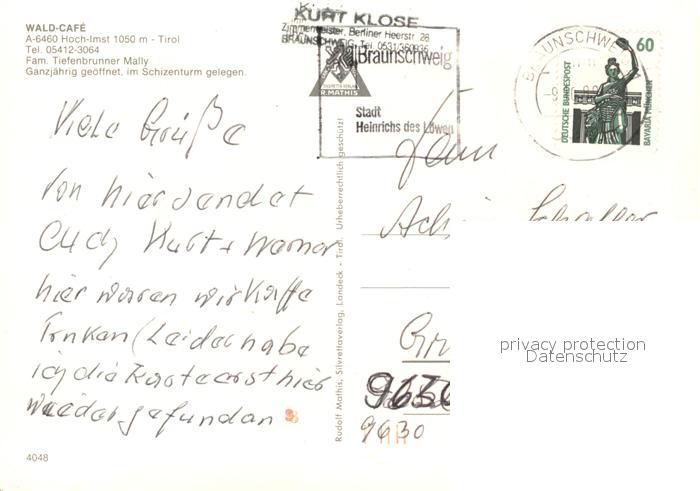 WALD-CAFÉ
A-6460 Hoch-Imst 1050 m - Tirol
Tel. 05412-3064
Fam. Tiefenbrunner Mally
Ganzjährig geöffnet, im Schizenturm gelegen.
KURT KLOSE
Zimmermeister, Berliner Heerstr. 28
BRAUNSCHWEIG, Tel. 0531/360836
Braunschweig
R.MATHIS
Stadt
Heinrichs des Löwen
BRAUNSCHWE
60
DEUTSCHE BUNDESPOST
BAVARIA MÜNCHEN
Viele Grüße
von hier sendet
Euch Kurt + Werner
hier waren wir Kaffe
Trinken (Leider habe
ich die Karte erst hier
wieder gefunden
Rudolf Mathis, Silvrettaverlag, Landeck - Tirol. Urheberrechtlich geschützt!
Fam
privacy protection
Datenschutz
9630
9630
4048